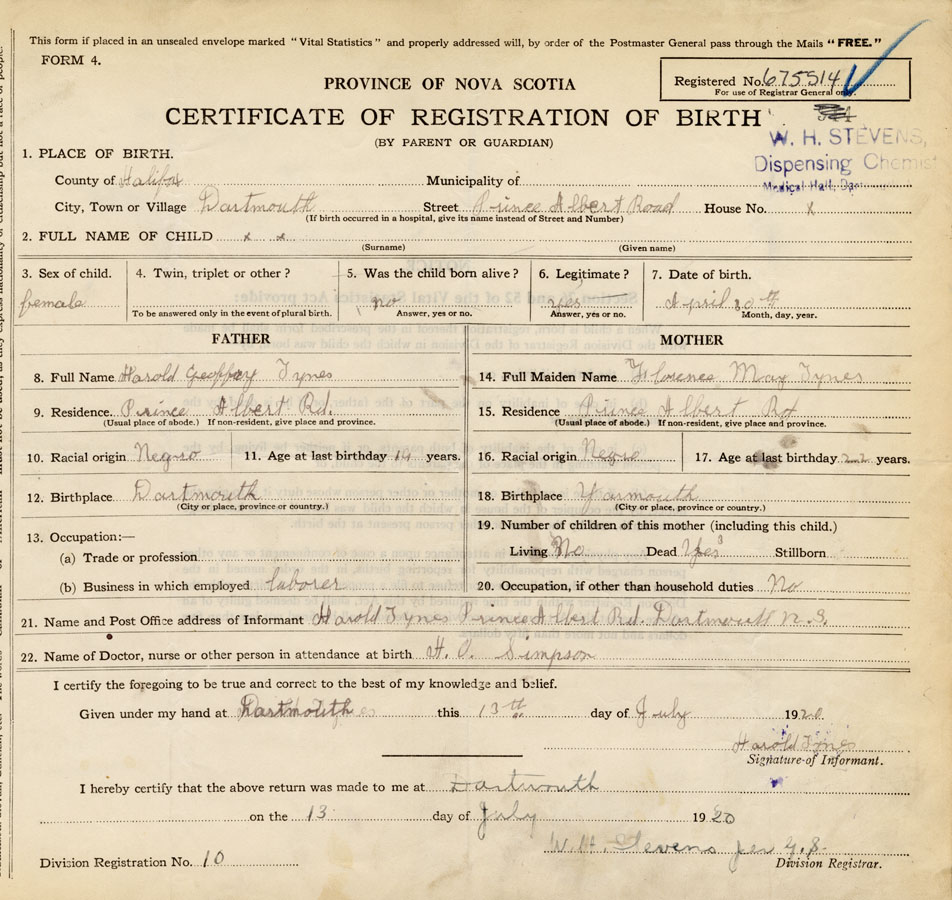 This form if placed in an unsealed envelope marked "Vital Statistics" and properly addressed will, by order of the Postmaster General pass through the Mails "FREE."
FORM 4.
Registered No. 675514
For use of Registrar General only.
PROVINCE OF NOVA SCOTIA
CERTIFICATE OF REGISTRATION OF BIRTH
(BY PARENT OR GUARDIAN)
W. H. STEVENS,
Dispensing Chemist
Medical Hall,
1. PLACE OF BIRTH.
County of Halifax Municipality of
City, Town or Village Dartmouth Street Prince Albert Road House No. x
(If birth occurred in a hospital, give its name instead of Street and Number)
2. FULL NAME OF CHILD x x
(Surname) (Given name)
3. Sex of child. 4. Twin, triplet or other? 5. Was the child born alive? 6. Legitimate? 7. Date of birth.
female no yes April 30th
To be answered only in the event of plural birth. Answer, yes or no. Answer, yes or no. Month, day, year.
FATHER MOTHER
8. Full Name Harold Geoffrey Tynes 14. Full Maiden Name Florence May Tynes
9. Residence. Prince Albert Rd. 15. Residence Prince Albert Rd
(Usual place of abode.) If non-resident, give place and province. (Usual place of abode.) If non-resident, give place and province.
10. Racial origin Negro 11. Age at last birthday 19 years. 16. Racial origin Negro 17. Age at last birthday 22 years.
12. Birthplace Dartmouth 18. Birthplace Yarmouth
(City or place, province or country.) (City or place, province or country.)
19. Number of children of this mother (including this child.)
13. Occupation:—
(a) Trade or profession Living No Dead Yes 3 Stillborn
(b) Business in which employed laborer 20. Occupation, if other than household duties No
21. Name and Post Office address of Informant Harold Tynes Prince Albert Rd. Dartmouth N.S.
22. Name of Doctor, nurse or other person in attendance at birth H. O. Simpson
I certify the foregoing to be true and correct to the best of my knowledge and belief.
Given under my hand at Dartmouth this 13th day of July 1920
Harold Tynes
Signature of Informant.
I hereby certify that the above return was made to me at Dartmouth
on the 13 day of July 1920
W. H. Stevens per
Division Registration No. 10 Division Registrar.